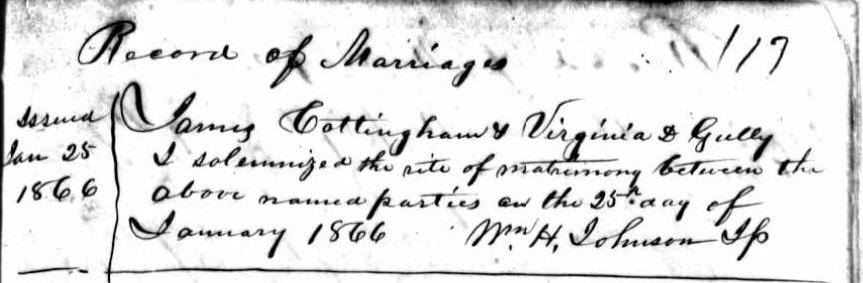 Record of Marriages 117
Issued
Jan 25
1866
James Cottingham & Virginia D Gully
I solemnized the rite of matrimony between the
above named parties on the 25th day of
January 1866 Wm H. Johnson Jp